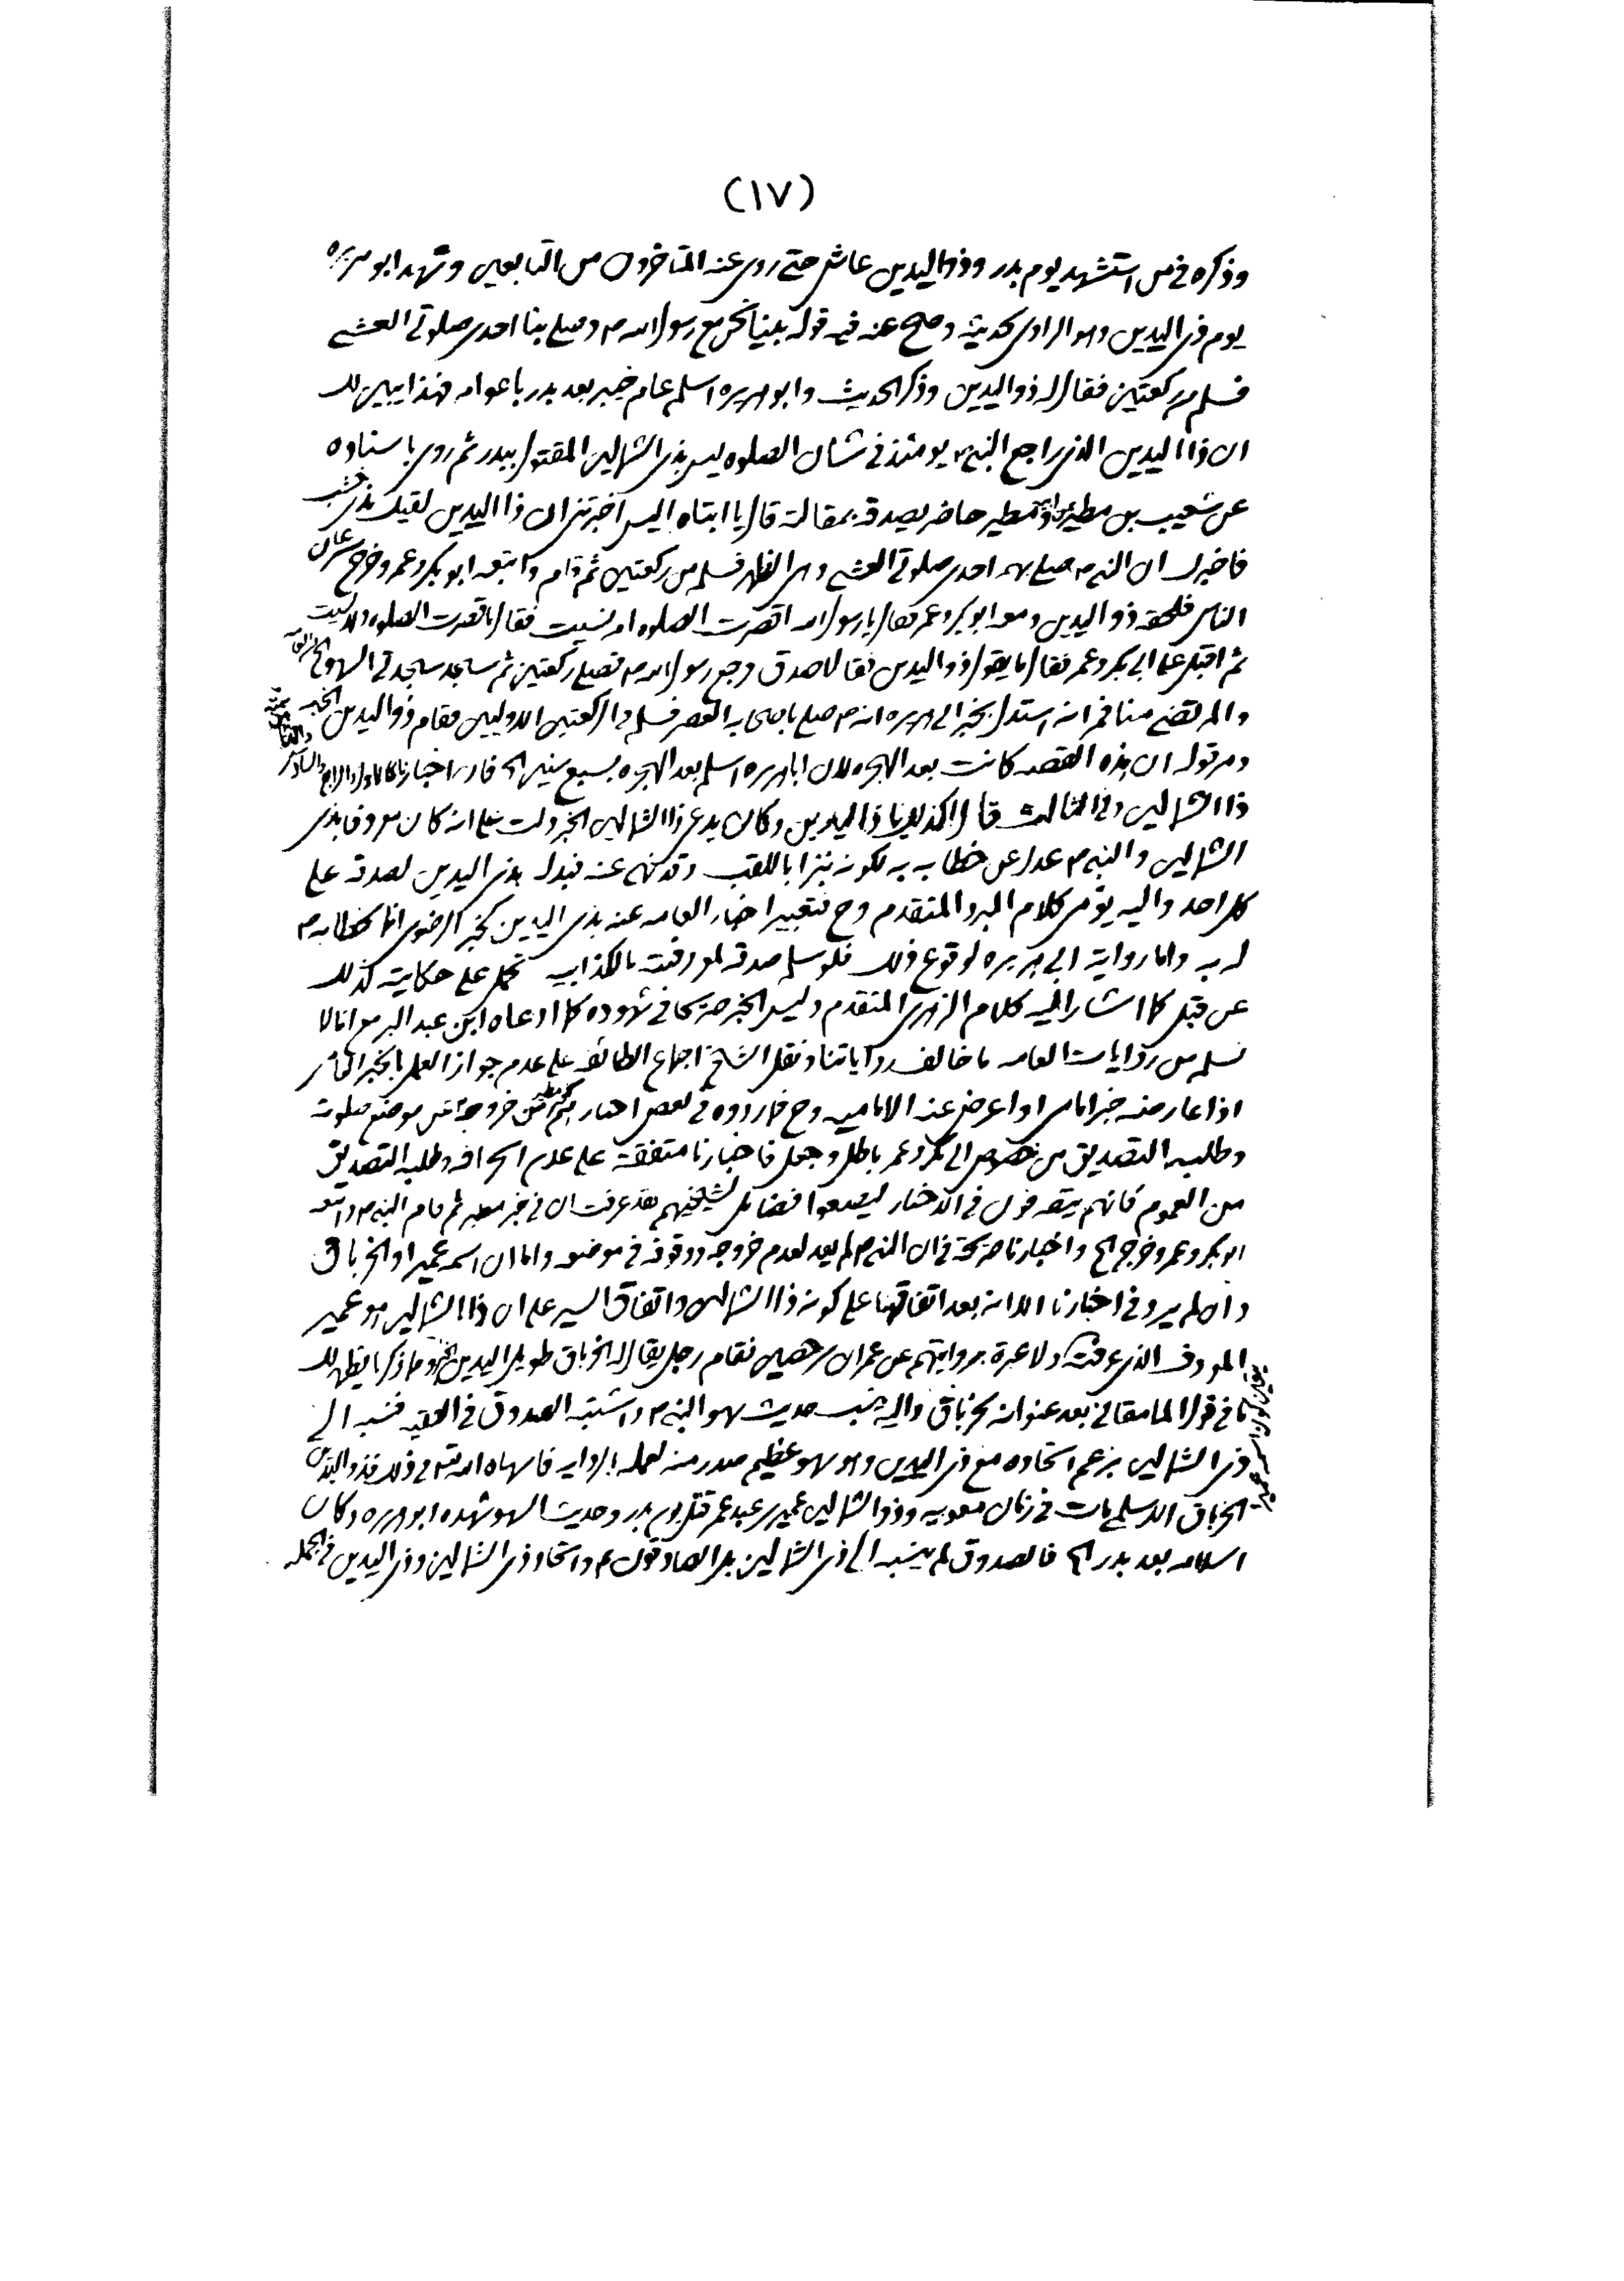 (١٧)
وذكره في من استشهد يوم بدر وذو اليدين عاش حتى روى عنه المتأخرون من التابعين وشهد ابو هريره
يوم ذي اليدين وهو الراوي لحديثه وصح عنه فيه قوله بينا نحن مع رسول الله ص وصلى بنا احدى صلوتي العشي
فسلم من ركعتين فقال له ذو اليدين وذكر الحديث وابو هريره اسلم عام خيبر بعد بدر باعوام فهذا يبين لك
ان ذا اليدين الذي راجع النبي ص يومئذ في شان الصلوه ليس بذي الشمالين المقتول ببدر ثم روى باسناده
عن شعيب بن مطير ومطير حاضر يصدقه بمقالته قال يا ابتاه اليس اخبرتني ان ذا اليدين لقيك بذي خشب
فاخبرك ان النبي ص صلى بهم احدى صلوتي العشي وهي الظهر فسلم من ركعتين ثم قام واتبعه ابو بكر وعمر وخرج سرعان
الناس فلحقه ذو اليدين ومعه ابو بكر وعمر فقال يا رسول الله اقصرت الصلوه ام نسيت فقال ما قصرت الصلوه ولا نسيت
ثم اقبل على ابي بكر وعمر فقال ما يقول ذو اليدين فقالا صدق فرجع رسول الله ص فصلى ركعتين ثم سجد سجدتي السهو
والمرتضى منا في انه استدل بخبر ابي هريره انه ص صلى باصحابه العصر فسلم في الركعتين الاوليين فقام ذو اليدين الخبر
ومر قوله ان هذه القصه كانت بعد الهجره لان ابا هريره اسلم بعد الهجره بسبع سنين الخ اخبارنا كالاول والرابع والسادس
ذا الشمالين وفي الثالث قال اكذلك يا ذا اليدين وكان يدعى ذا الشمالين الخبر دلت على انه كان معروفا بذي
الشمالين والنبي ص عدل عن خطابه به لكونه نبزا باللقب وقد نهى عنه فبدله بذي اليدين لصدقه على
كل احد واليه يومي كلام المبرد المتقدم وح فتعبير اخبار العامه عنه بذي اليدين كخبر الرضوي انما كخطابه ص
له به واما رواية ابي هريره لوقوع ذلك فلو سلم صدقه تحمل على حكايته كذلك
عن قبل كما اشار اليه كلام الزهري المتقدم وليس الخبر صريحا في شهوده كما ادعاه ابن عبد البر مع انا لا
نسلم من روايات العامه ما خالف رواياتنا ونقل الشيخ اجماع الطائفه على عدم جواز العمل بالخبر العامي
اذا عارضه خبر امامي او اعرض عنه الاماميه وح فما رووه في بعض اخبارهم من خروجه عن موضع صلوته
وطلبه التصديق من خصوص ابي بكر وعمر باطل وجعل فاخبارنا متفقة على عدم انحرافه وطلبه التصديق
من العموم فانهم يتصرفون في الاخبار ليضعوا فضائل لشيخيهم فقد عرفت ان في خبر مطير ثم قام النبي ص واتبعه
ابو بكر وعمر وخرج الخ واخبارنا صريحة في ان النبي ص لم يعد لعدم خروجه ووقوفه في موضعه واما ان اسمه عمير او الخرباق
وان لم يرو في اخبارنا الا انه بعد اتفاقها على كونه ذا الشمالين واتفاق السير على ان ذا الشمالين هو عمير
المعروف الذي عرفت ولا عبرة بروايتهم عن عمران بن حصين فقام رجل يقال له الخرباق طويل اليدين ومما ذكرنا يظهر لك
ما في قول المامقاني بعد عنوانه لخرباق واليه ينسب حديث سهو النبي ص واشتبه الصدوق في الفقيه فنسبه الى
ذي الشمالين بزعم اتحاده مع ذي اليدين وهو سهو عظيم صدر منه لعمله بالروايه فاسهاه الله تعالى في ذلك فذو اليدين
الخرباق الاسلمي مات في زمان معويه وذو الشمالين عمير بن عبد عمر قتل يوم بدر وحديث السهو شهده ابو هريره وكان
اسلامه بعد بدر الخ فالصدوق لم ينسبه الى ذي الشمالين بل الصادقون ع واتحاد ذي الشمالين وذي اليدين في الجمله